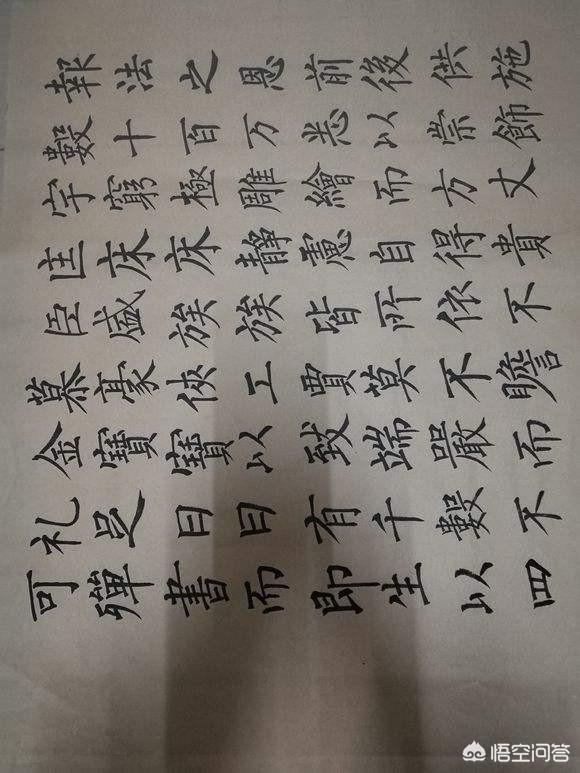 報法之恩前後供施
數十百万悉以崇飾
宇窮極雕繪而方丈
匡床床靜慮自得貴
臣盛族族皆所依不
慕豪俠工賈莫不瞻
金寶寶以致端嚴而
礼足曰曰有千數不
可殫書而即生以四
悟空问答